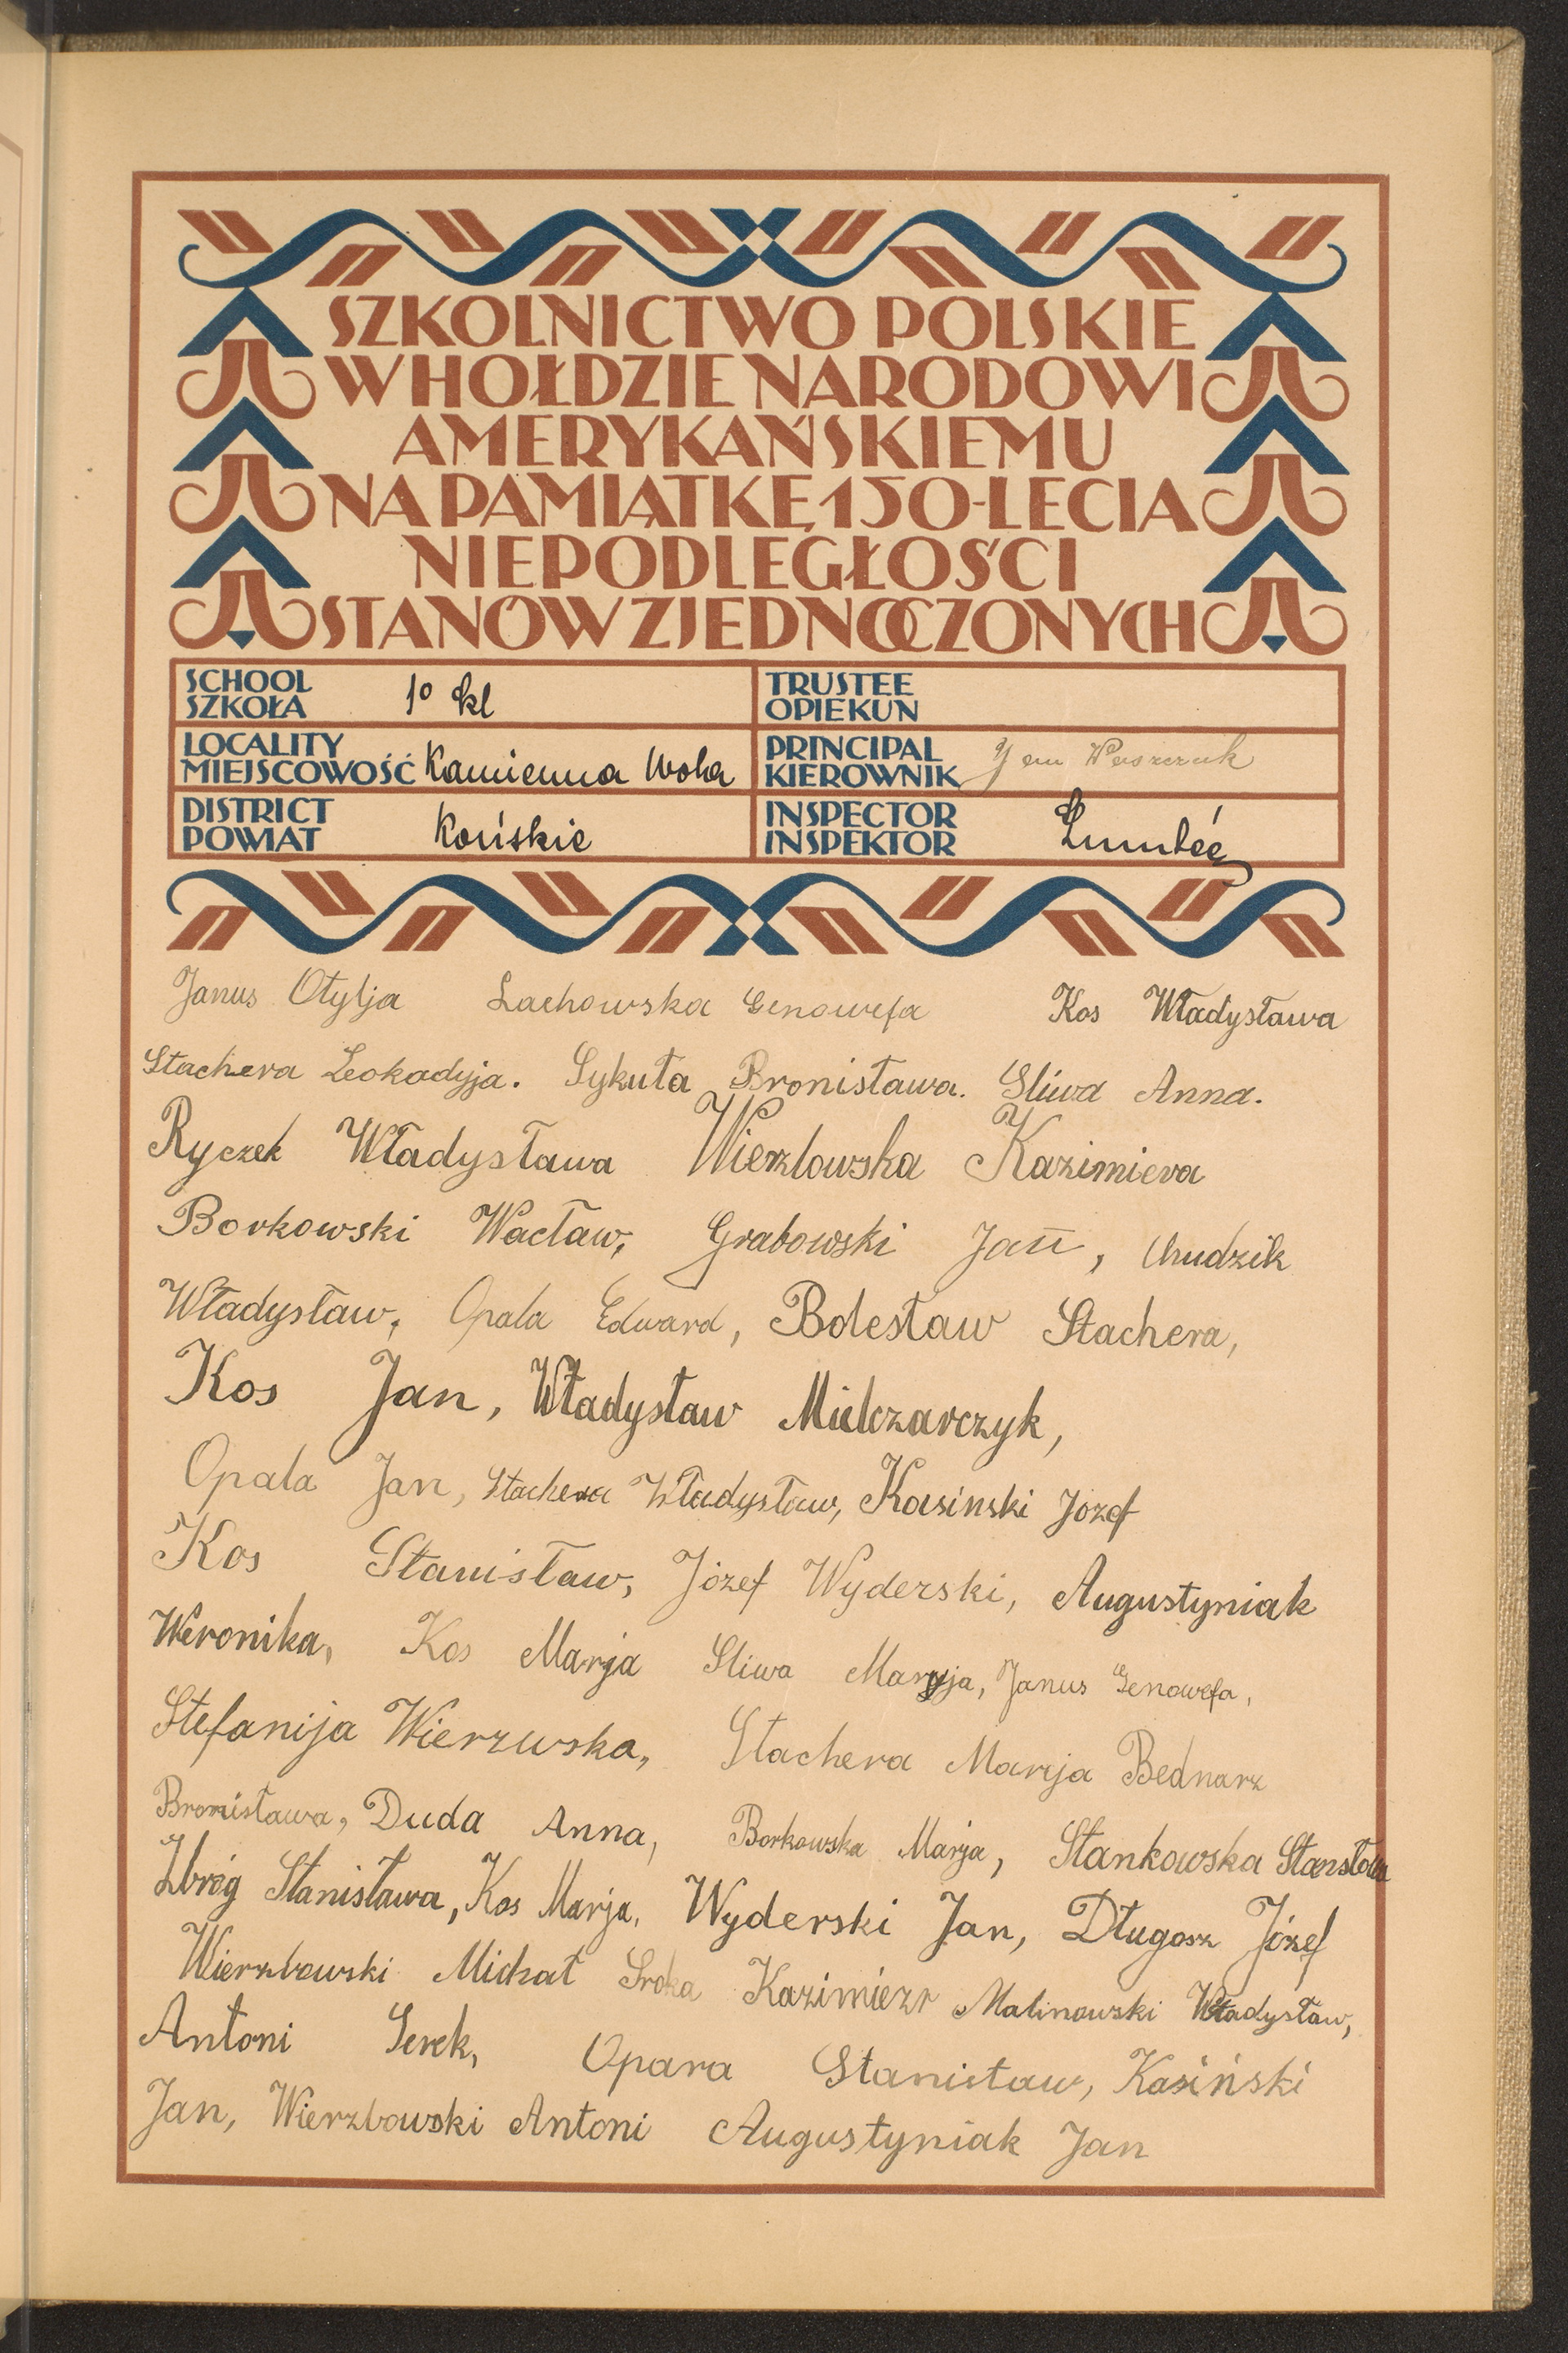 SZKOLNICTWO POLSKIE
W HOŁDZIE NARODOWI
AMERYKAŃSKIEMU
NA PAMIĄTKĘ 150-LECIA
NIEPODLEGŁOŚCI
STANÓW ZJEDNOCZONYCH
SCHOOL
SZKOŁA 1º kl
TRUSTEE
OPIEKUN
LOCALITY
MIEJSCOWOŚĆ Kamienna Wola
PRINCIPAL
KIEROWNIK
DISTRICT
POWIAT Końskie
INSPECTOR
INSPEKTOR
Janus Otylja Lachowska Genowefa Kos Władysława
Stachera Leokadyja. Sykuła Bronisława. Sliwa Anna.
Ryczek Władysława Wierzbowska Kazimiera
Borkowski Wacław, Grabowski Jan, Chudzik
Władysław, Opala Edward, Bolesław Stachera,
Kos Jan, Władysław Mielczarczyk,
Opala Jan, Stachera Władysław, Kasinski Józef
Kos Stanisław, Józef Wyderski, Augustyniak
Weronika, Kos Marja Sliwa Maryja, Janus Genowefa,
Stefanija Wierzwska, Stachera Marija Bednarz
Bronisława, Duda Anna, Borkowska Marja, Stankowska Stansława
Zbróg Stanisława, Kos Marja, Wyderski Jan, Długosz Józef
Wierzbowski Michał Sroka Kazimierz Malinowski Władysław,
Antoni Gerek, Opara Stanisław, Kasiński
Jan, Wierzbowski Antoni Augustyniak Jan